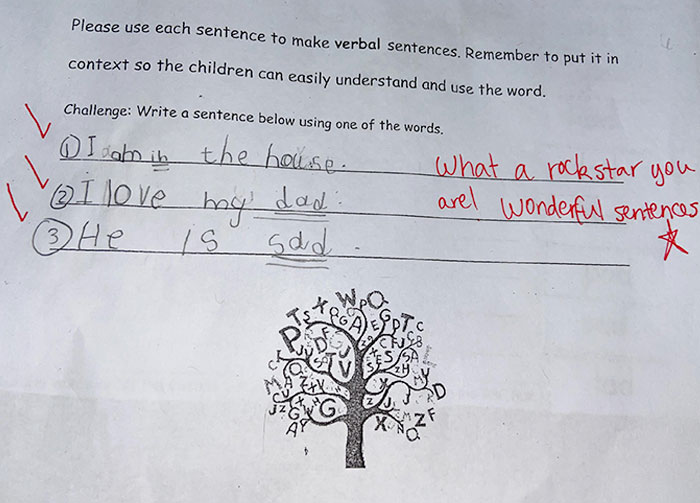 Please use each sentence to make verbal sentences. Remember to put it in
context so the children can easily understand and use the word.
Challenge: Write a sentence below using one of the words.
① I am in the house.
What a rockstar you
② I love my dad.
are! Wonderful sentences
③ He is sad.